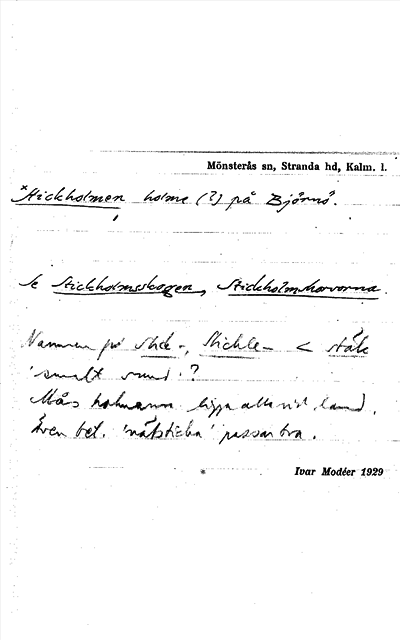 Mönsterås sn, Stranda hd, Kalm. l.
*Stickholmen holme (?) på Björnö.
Se Stickholmsskogen, Stickholmskororna.
Namnen på Stick-, Stickle- < stäk
'smalt sund'?
holmarna ligga alla vid land.
Även bet. 'nätsticka' passar bra.
Ivar Modéer 1929